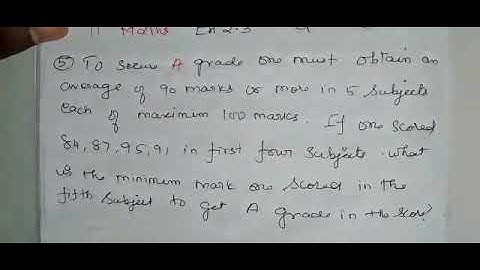 11 Maths Ex 2.3
⑤ To secure A grade one must obtain an
average of 90 marks or more in 5 subjects
each of maximum 100 marks. If one scored
84, 87, 95, 91 in first four subjects. what
is the minimum mark one scored in the
fifth subject to get A grade in the